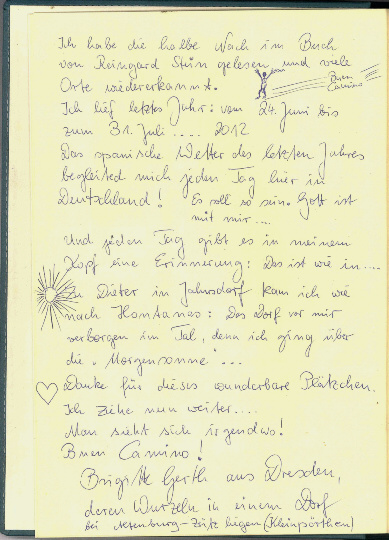 Ich habe die halbe Nach im Buch
von Reingard Stein gelesen und viele
Orte wiedererkannt.
Buen
Camino
Ich lief letztes Jahr: vom 24. Juni bis
zum 31. Juli .... 2012
Das spanische Wetter des letzten Jahres
begleited mich jeden Tag hier in
Deutschland! Es soll so sein. Gott ist
mit mir....
Und jeden Tag gibt es in meinem
Kopf eine Erinnerung: Das ist wie in....
Zu Dieter in Jahnsdorf kam ich wie
nach Hontanas: Das Dorf vor mir
verborgen im Tal, denn ich ging über
die "Morgensonne"...
Danke für dieses wunderbare Plätzchen.
Ich ziehe nun weiter....
Man sieht sich irgendwo!
Buen Camino!
Brigitte Gerth aus Dresden,
deren Wurzeln in einem Dorf
bei -Zeitz liegen (Kleinpörthen)